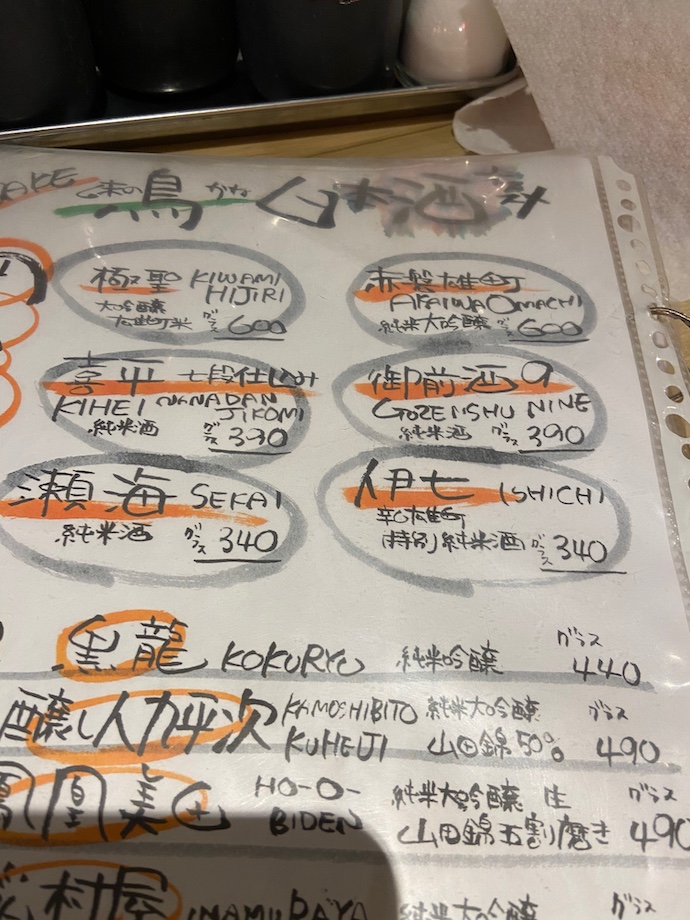 SAKE 味の鳥かね 日本酒
極聖 KIWAMI HIJIRI
大吟醸 雄町米 グラス 600
赤磐雄町
AKAIWAOMACHI
純米大吟醸 グラス 600
喜平 七段仕込み
KIHEI NANADAN JIKOMI
純米酒 グラス 390
御前酒 9
GOZENSHU NINE
純米酒 グラス 390
瀬海 SEKAI
純米酒 グラス 340
伊七 ISHICHI
雄町
特別純米酒 グラス 340
黒龍 KOKURYU 純米吟醸 グラス 440
醸し人九平次 KAMOSHIBITO KUHEIJI 純米大吟醸 山田錦50% グラス 490
鳳凰美田 HO-O-BIDEN 純米大吟醸 生 山田錦五割磨き グラス 490
村屋 INAMURAYA 純米大吟醸 グラス